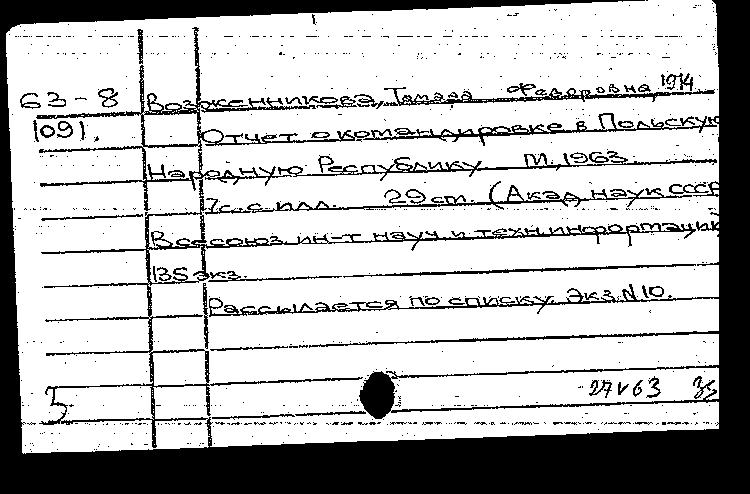 63-8 Возженникова, Тамара Федоровна, 1914
1091. Отчет о командировке в Польскую
Народную Республику. М., 1963.
7с. с илл. 29 см. (Акад. наук СССР
Всесоюз. ин-т науч. и техн. информации)
135 экз.
Рассылается по списку. Экз. N 10.
3 27 V 63